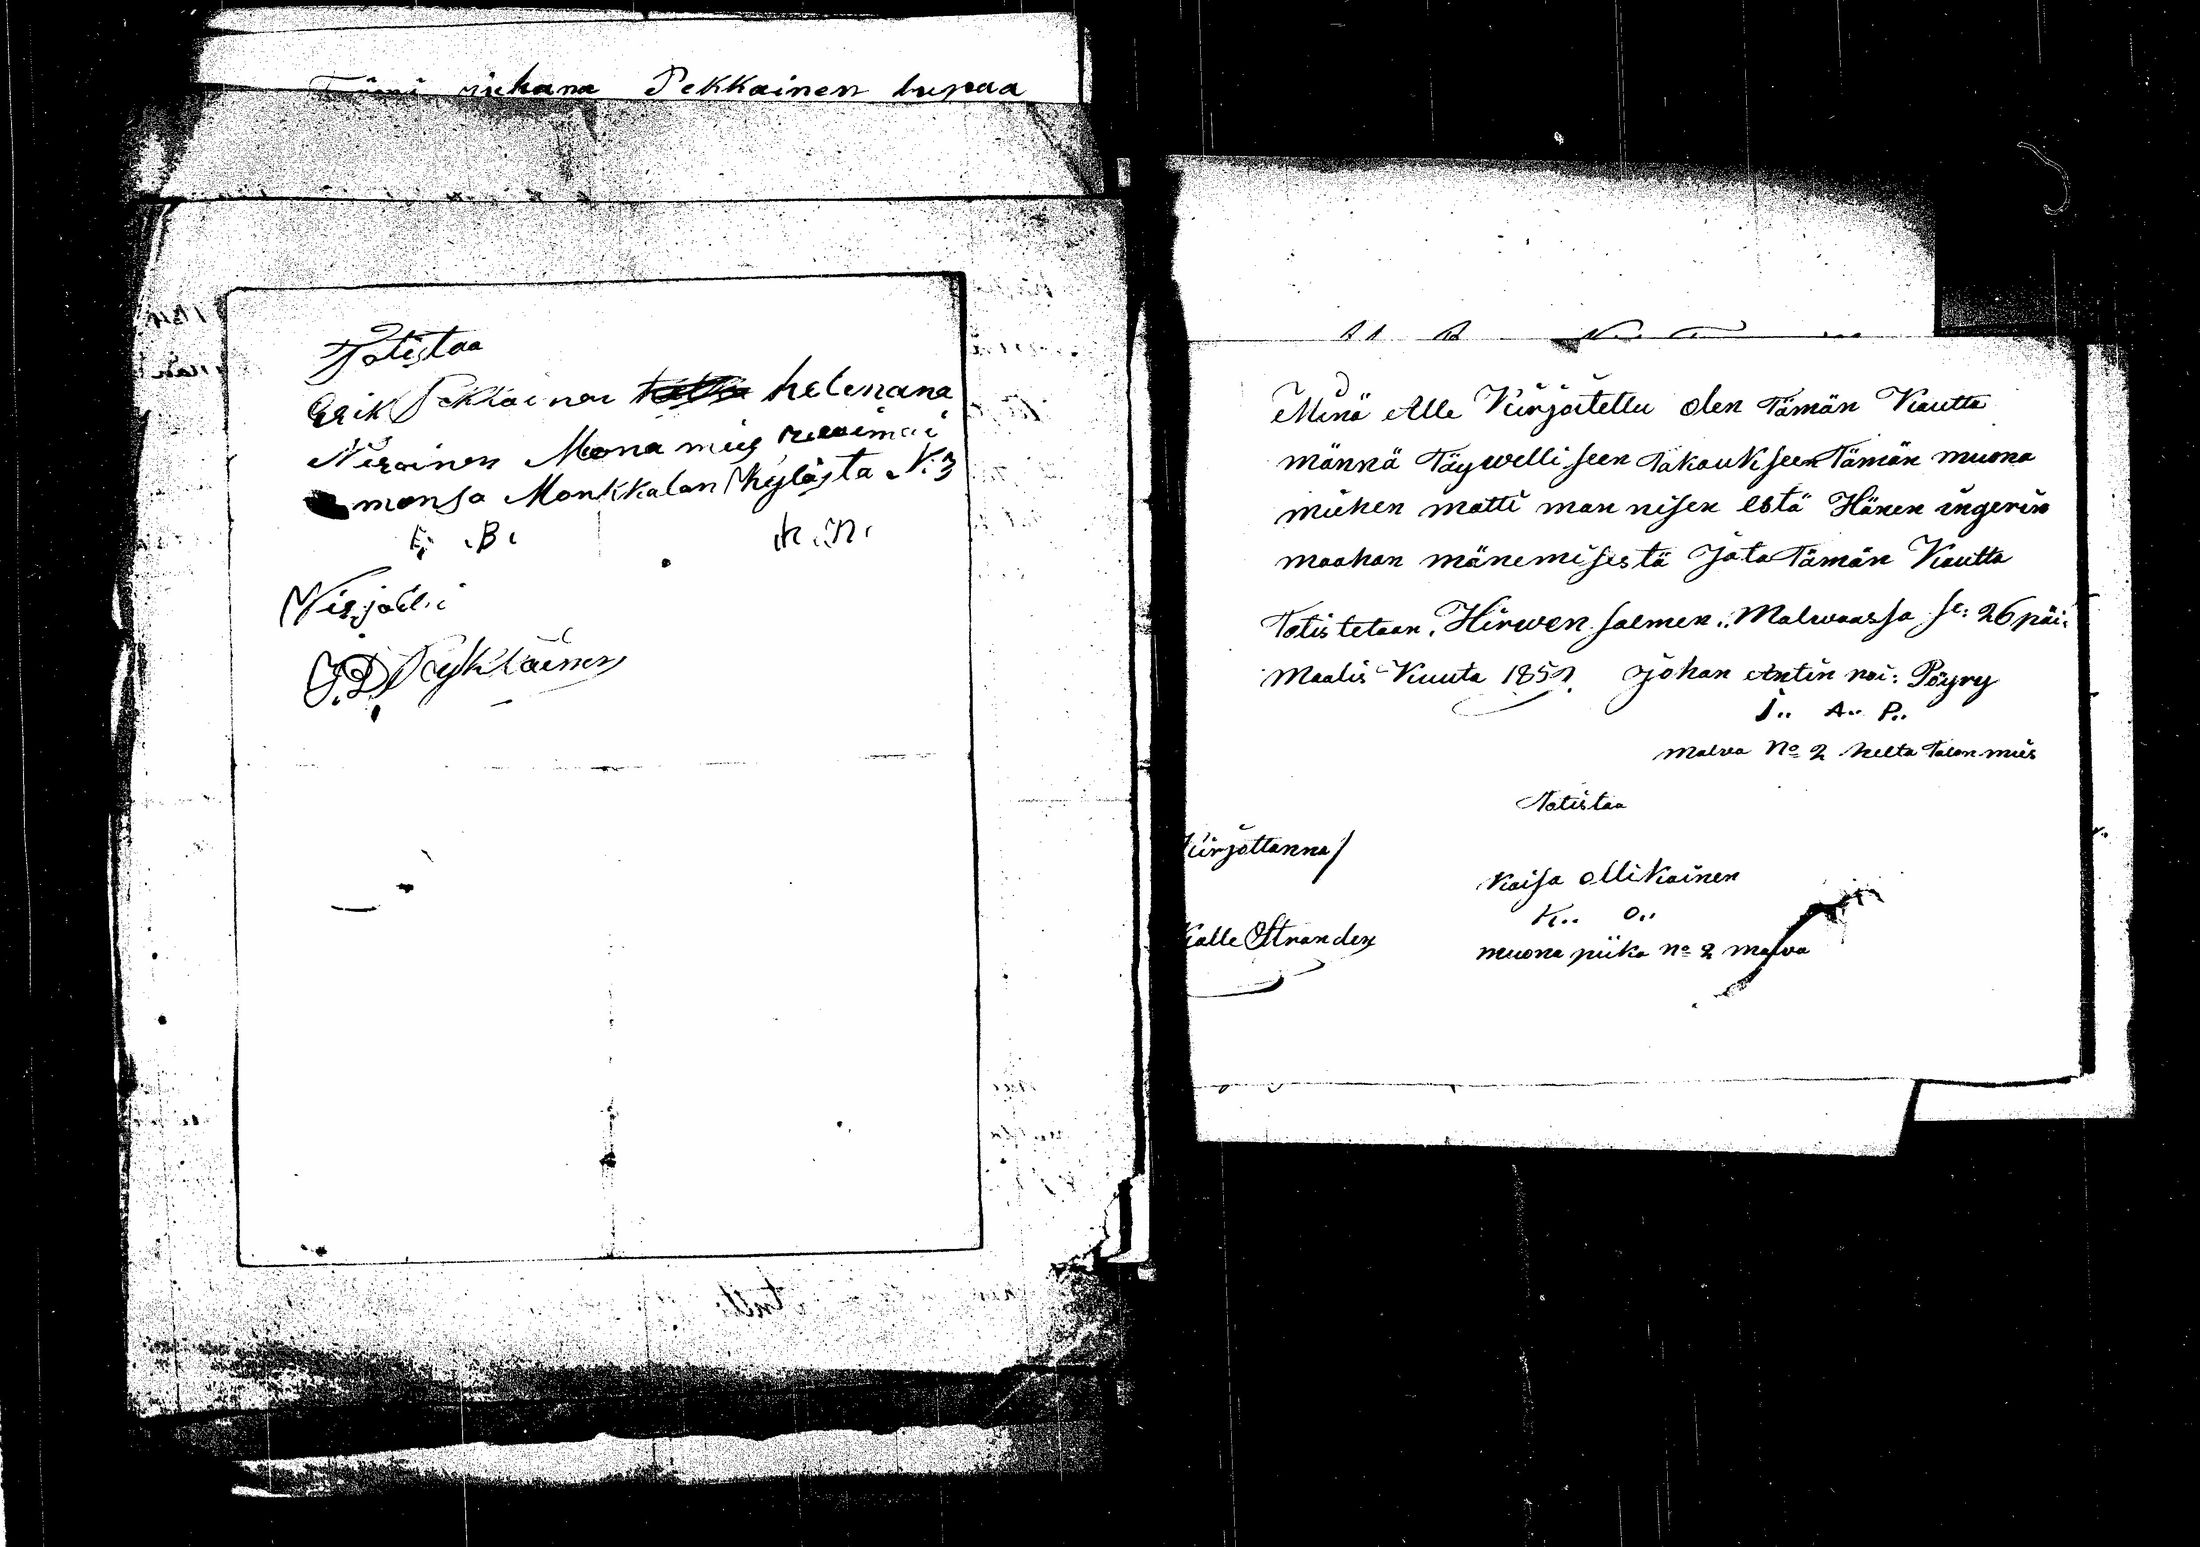 juhana Pekkainen lupaa
Totistaa
Erik Pekkainen helenana
Nisainen Mona mies
monsa Monkkalan Kylästa N:3
E. .B. .h. .N.
Kirjoitti
Minä Alle Kirjoitettu olen Tämän Kautta
männä Täywelliseen takaukseen Tämän muona
miehen matti man nisen että Hänen ingerin
maahan mänemisestä Jota Tämän Kautta
Totistetaan, Hirwen salmen, Malwaassa se: 26 päi:
Maalis Kuuta 185 Johan Antin poi: Pöyry
J.. A.. P..
malva No 2 helta Talon mies
Totistaa
Kirjottanna/
Kaisa ollikainen
K.. O..
Kalle Strander
muona piika No 2 malva